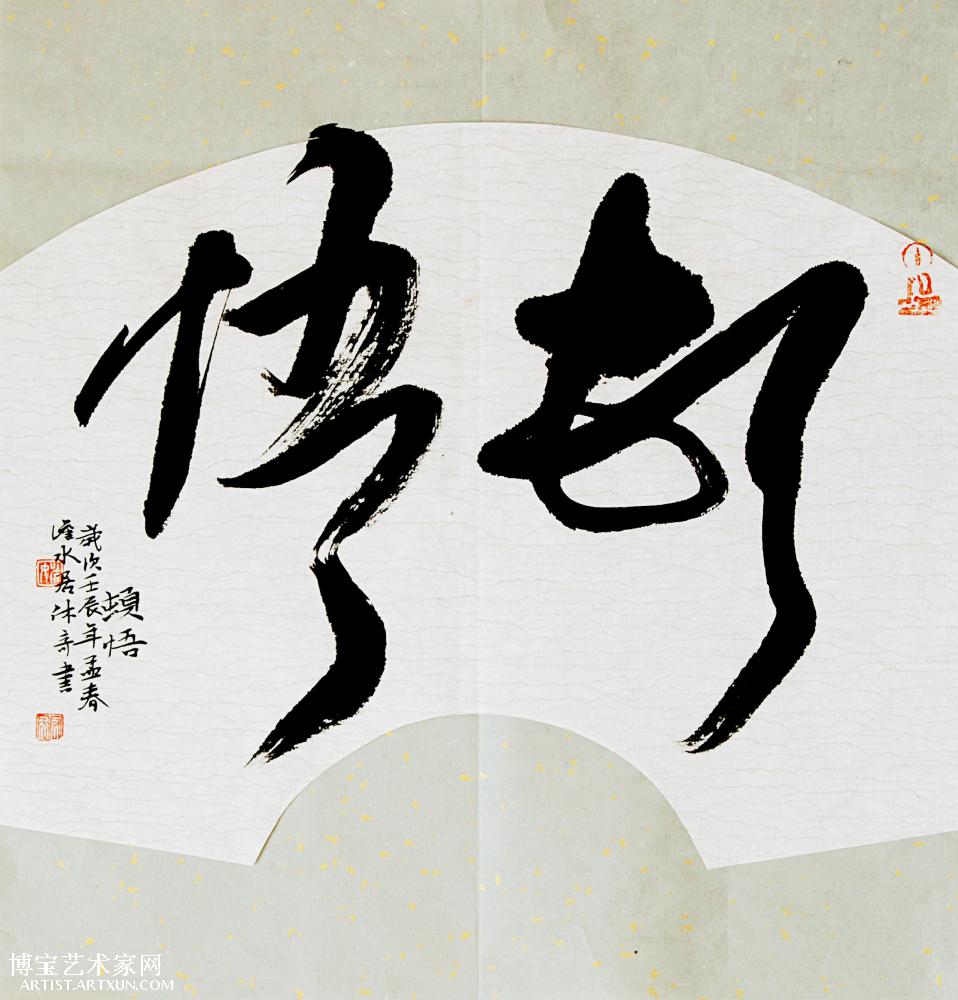 顿悟
頓悟
歲次壬辰年孟春
水居沐奇書
博宝艺术家网
ARTIST.ARTXUN.COM